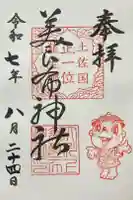 奉拝
土佐国
一位
美
神社
令和七年
八月二十四日